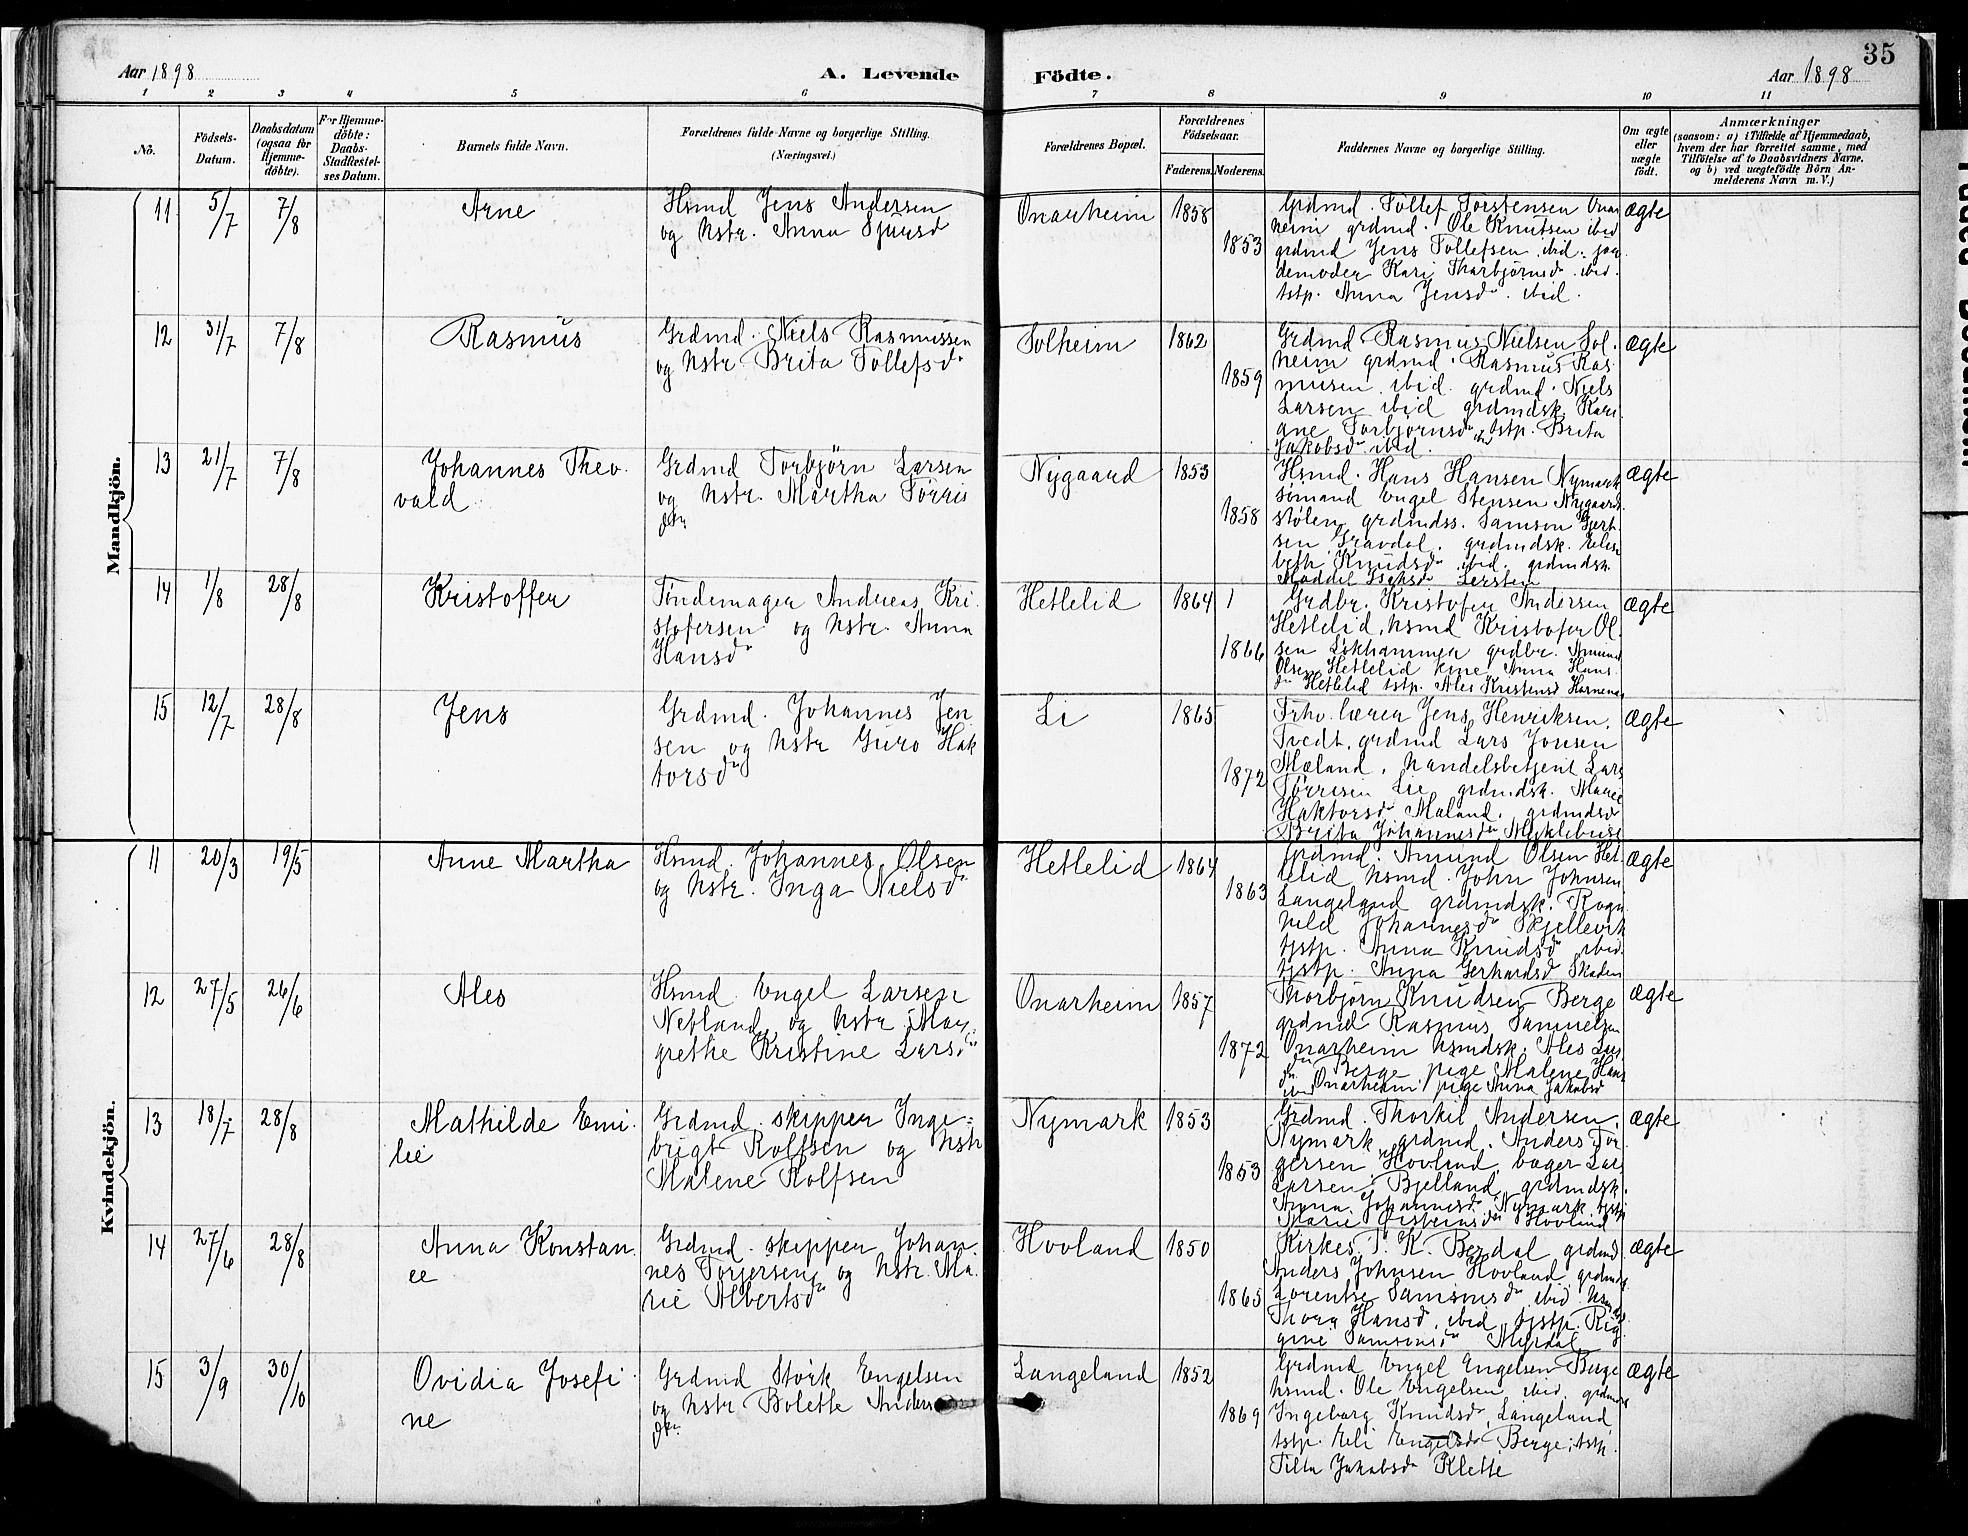 35
Aar 1898
A. Levende
Födte.
Aar 1898
1 2 3 4 5 6 7 8 9 10 11
No.
Födsels-Datum.
Daabsdatum (ogsaa for Hjemme-döbte).
For Hjemme-döbte: Daabs-Stadfæstel-ses Datum.
Barnets fulde Navn.
Forældrenes fulde Navne og borgerlige Stilling.
(Næringsvei.)
Forældrenes Bopæl.
Forældrenes Födselsaar.
Faderens. Moderens.
Faddernes Navne og borgerlige Stilling.
Om ægte eller uægte födt.
Anmærkninger
(saasom: a) i Tilfælde af Hjemmedaab,
hvem der har forrettet samme, med
Tilföielse af to Daabsvidners Navne,
og b) ved uægtefödte Börn An-
melderens Navn m. V.)
Mandkjön.
11 5/7 7/8 Arne
Hsmd Jens Andersen
og hstr. Anna Sjursd
Onarheim 1858 1853
Grdmd. Tollef Torstensen Onar
heim grdmd. Ole Knutsen ibid
grdmd Jens Tollefsen ibid. jor
demoder Kari Thorbjørnsdr ibid.
tstp. Anna Jensdr ibid.
ægte
12 31/7 7/8 Rasmus
Grdmd. Niels Rasmussen
og hstr. Brita Tollefsdr
Solheim 1862 1859
Grdmd Rasmus Nielsen Sol.
heim grdmd. Rasmus Ras
musen ibid. grdmd. Niels
Larsen ibid grdmdsk. Kari
ane Torbjørnsdr ibid tstp. Brita
Jakobsdr ibid.
ægte
13 21/7 7/8 Johannes Theo.
vald
Grdmd Torbjörn Larsen
og hstr. Martha Tørris
dtr.
Nygaard 1853 1858
Hsmd. Hans Hansen Nymark
sømand Engel Stensen Nygaards
stølen grdmdss. Samson Gjert
sen Gravdal. grdmdsk. Elisa
beth Knudsdr ibid. grdmdsk.
ægte
14 1/8 28/8 Kristoffer
Tøndemager Andreas Kri.
stofersen og hstr. Anna
Hansdr
Hetlelid 1864 1 1866
Grdbr. Kristofer Andersen
Hetlelid, hsmd Kristofer Ol.
sen Eskhammer grdbr. Amund
Olsen Hetlelid kone Anna Hans
dr Hetlelid tstp. Ales Kristensd
ægte
15 12/7 28/8 Jens
Grdmd. Johannes Jen
sen og hstr Guro Hak
torsdr
Li 1865 1872
Frhv. lærer Jens Henriksen,
Tvedt, grdmd Lars Jonsen
Mæland, handelsbetjent Lars
Tørrisen Lie grdmdsk. Marie
Haktorsdr Mæland, grdmdsd
Brita Johannesdr Myklebust
ægte
Kvindekjön.
11 20/3 19/5 Anne Martha
Hsmd. Johannes Olsen
og hstr. Inga Nielsdr
Hetlelid 1864 1863
Grdmd. Amund Olsen Het.
lelid hsmd. John Johnsen
Langeland grdmdsk. Ragn
hild Johannesdr Skjellevik
tjstp. Anna Knudsdr ibid.
tjstp. Anna Gerhardsd Skaden
ægte
12 27/5 26/6 Ales
Hsmd. Engel Larsen
Netland og hstr Mar
grethe Kristine Larsdr
Onarheim 1857 1872
Thorbjørn Knudsen Berge
grdmd Rasmus Samuelsen
Onarheim hsmdsk. Ales Lars
dr Berge pige Malene Hans
dr Onarheim pige Anna Jakobsd
ibid
ægte
13 18/7 28/8 Mathilde Emi.
lie
Grdmd. skipper Inge=
brigt Rolfsen og hstr
Malene Rolfsen
Nymark 1853 1853
Grdmd. Thorkil Andersen,
Nymark grdmd. Anders Tor
gersen, Hovland, bager Lars
Larsen Bjelland, grdmdsk.
Anna Johannesdr Nymark tjstp
Marie Eisteinsdr Hovland
ægte
14 27/6 28/8 Anna Konstan.
ce
Grdmd. skipper Johan
nes Torjersen og hstr. Ma.
rie Albertsdr
Hovland 1850 1865
Kirkes. T. K. Berdal grdmd
Anders Johnsen Hovland grdmdsk.
Lorentse Samsonsdr ibid. hsmdsk
Thora Hansd. ibid, tjstp. Rig
gine Samsonsdr Myrdal
ægte
15 3/9 30/10 Ovidia Josefi.
ne
Grdmd Størk Engelsen
og hstr Bolette Anders
dtr.
Langeland 1852 1869
Grdmd Engel Engelsen Berge
hsmd. Ole Engelsen ibid. grdmds
Ingeborg Knudsdr Langeland
tstp. Eli Engelsdr Berge, tstp.
Tilla Jakobsdr Klette
ægte